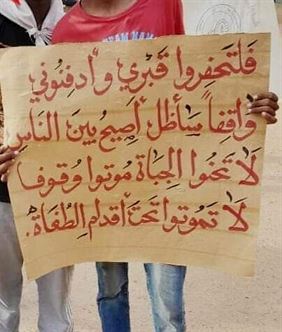 فلتحفروا قبري وأدفنوني
واقفاً سأظل أصيح بين الناس
لا تحنوا الجباة موتوا وقوفا
لا تموتوا تحت أقدام الطغاة.